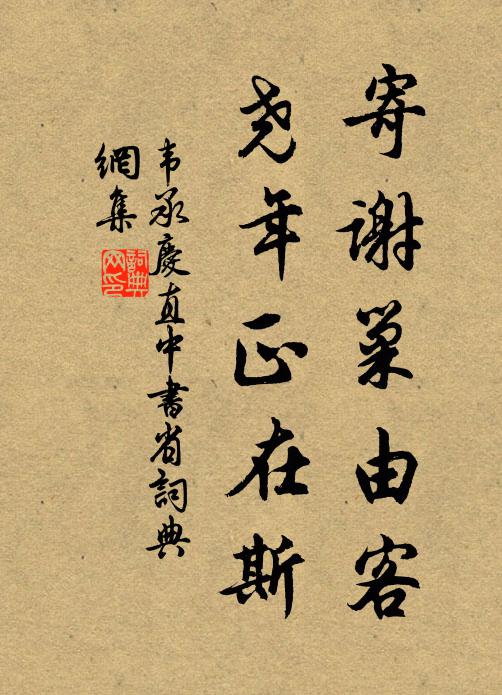 寄谢巢由客
尧年正在斯
韦承慶直中書省詞典
網集
詞典網印